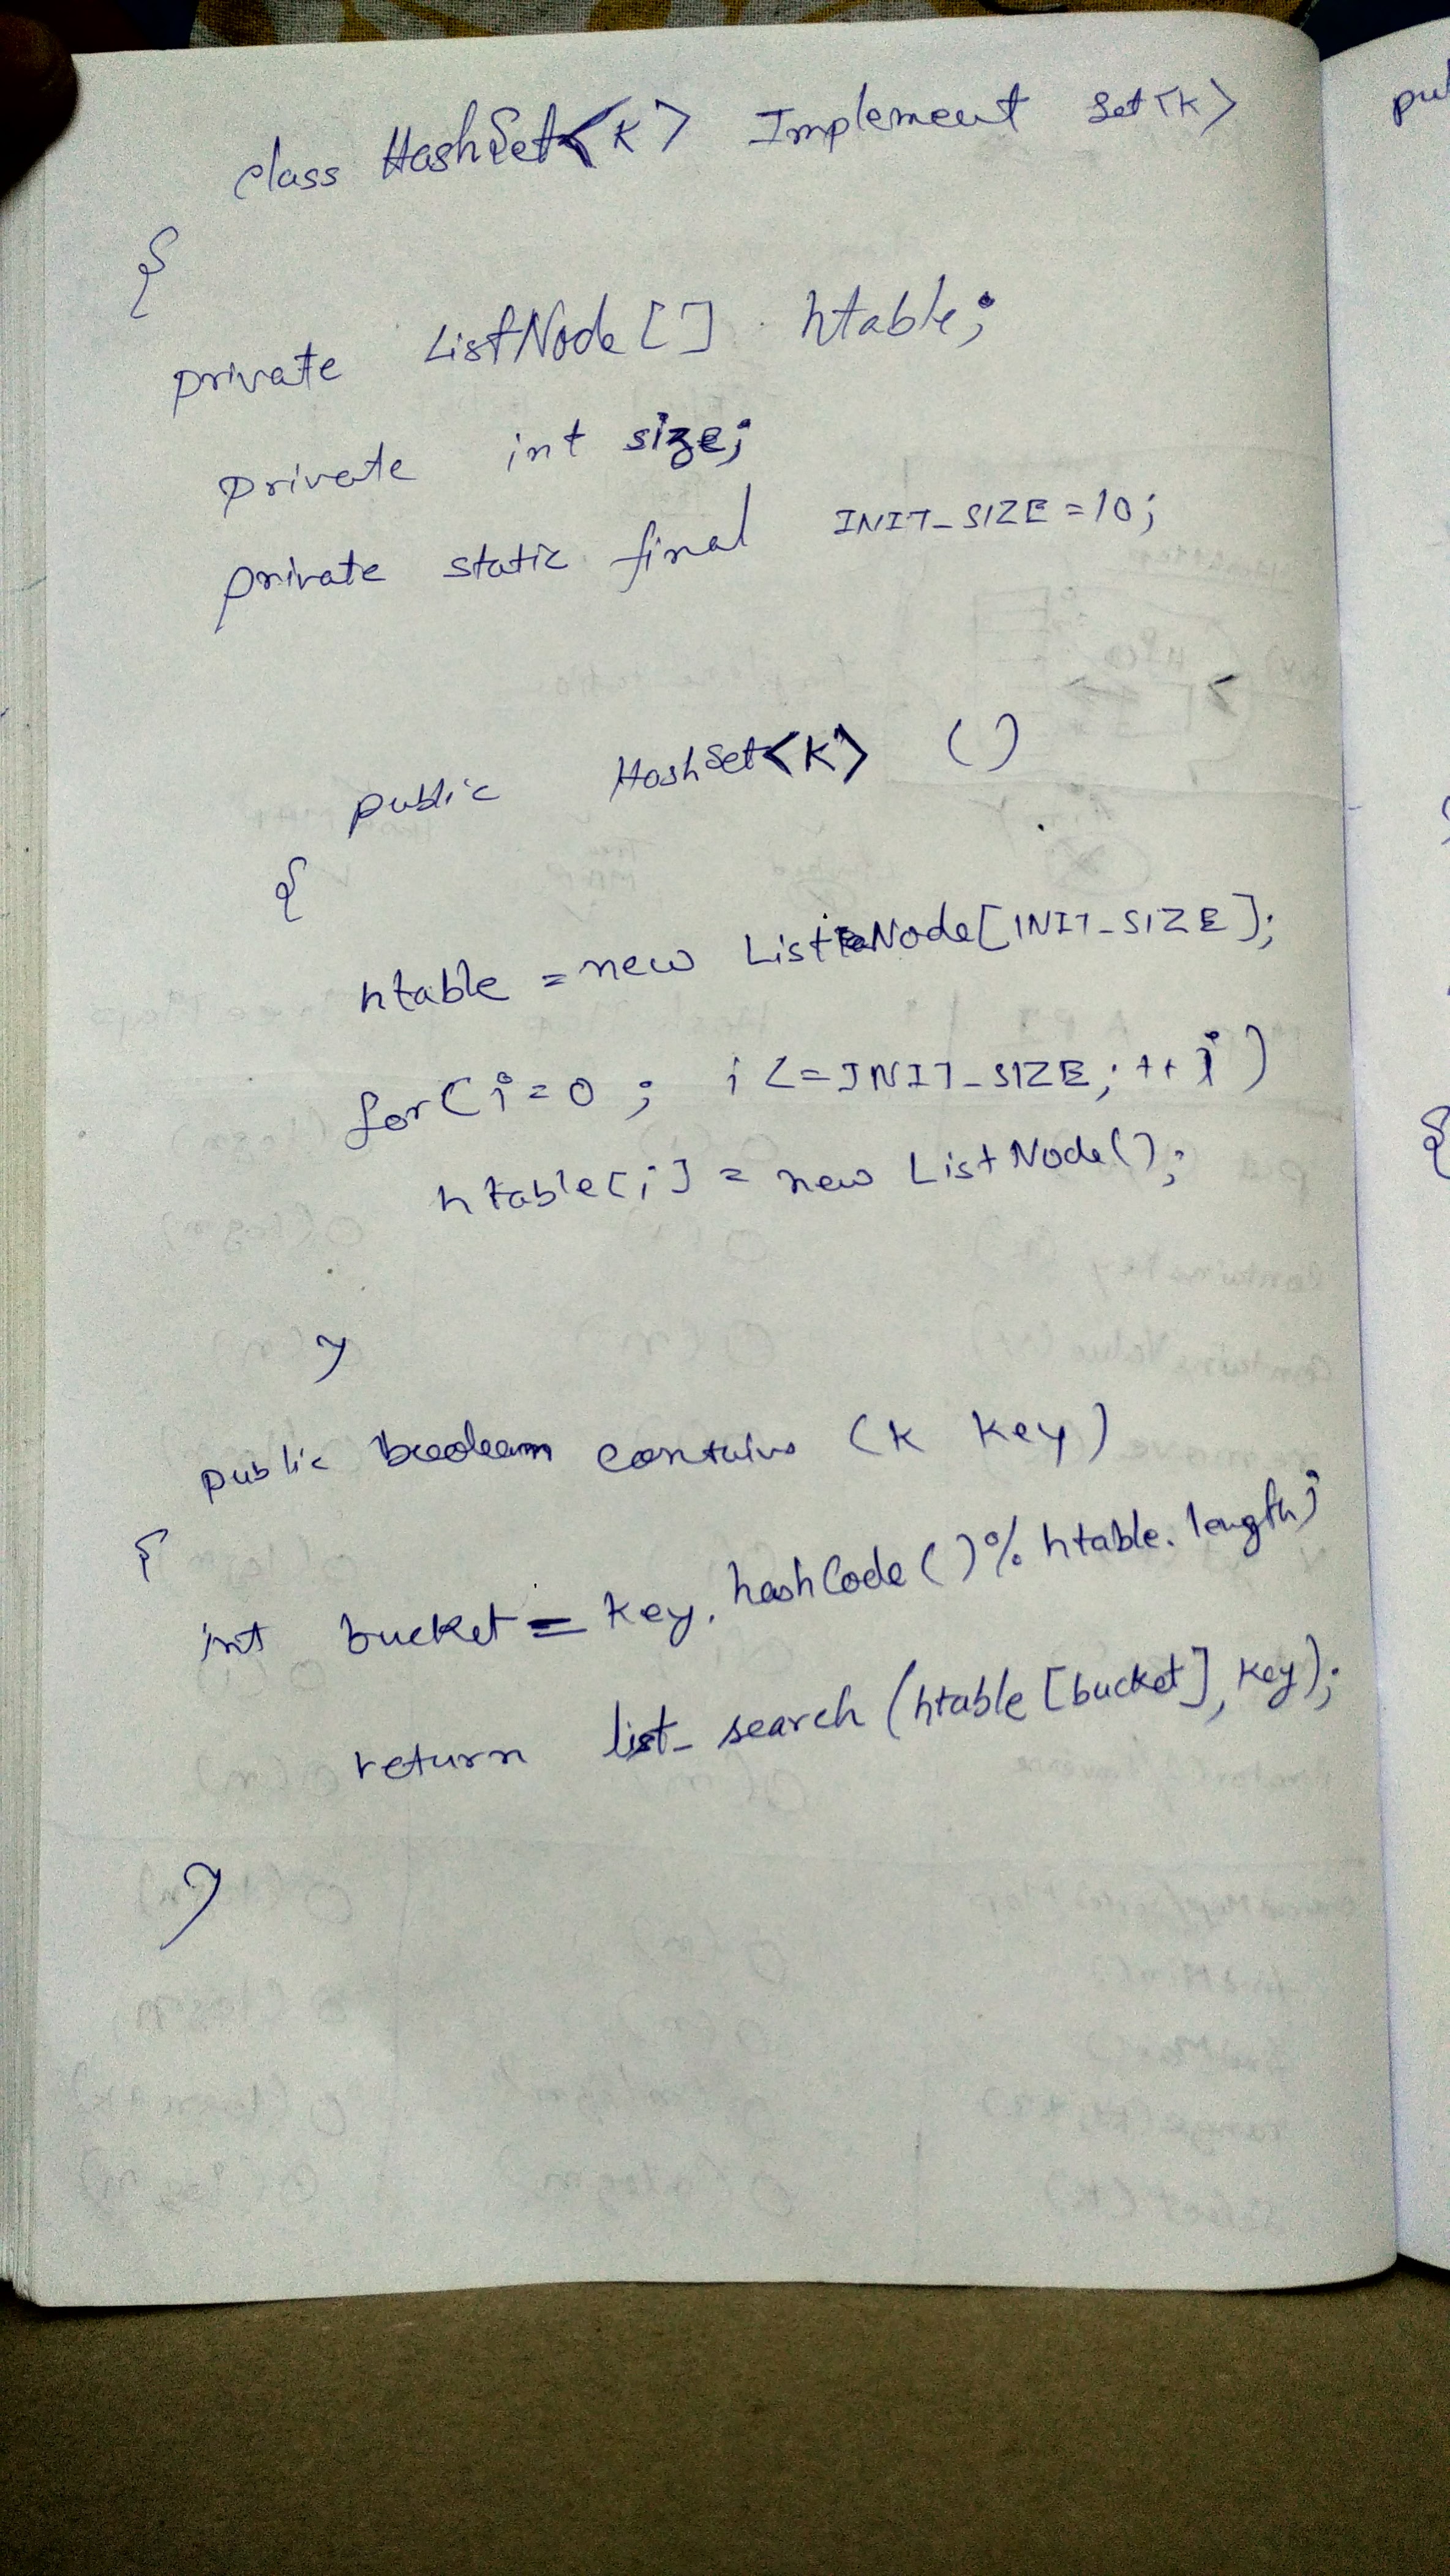 class HashSet<K> Implement Set<K>
{
private ListNode[] htable;
private int size;
private static final INIT_SIZE=10;
public HashSet<K> ()
{
htable = new ListNode[INIT_SIZE];
for(i=0; i<=INIT_SIZE; ++i)
htable[i] = new ListNode();
}
public boolean contains (K key)
{
int bucket = key.hashCode()% htable.length;
return list_search(htable[bucket], key);
}